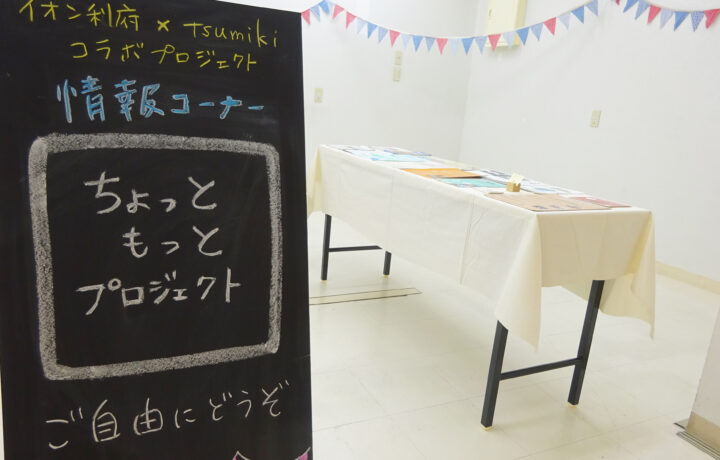 イオン利府 × tsumiki
コラボプロジェクト
情報コーナー
ちょっと
もっと
プロジェクト
ご自由にどうぞ